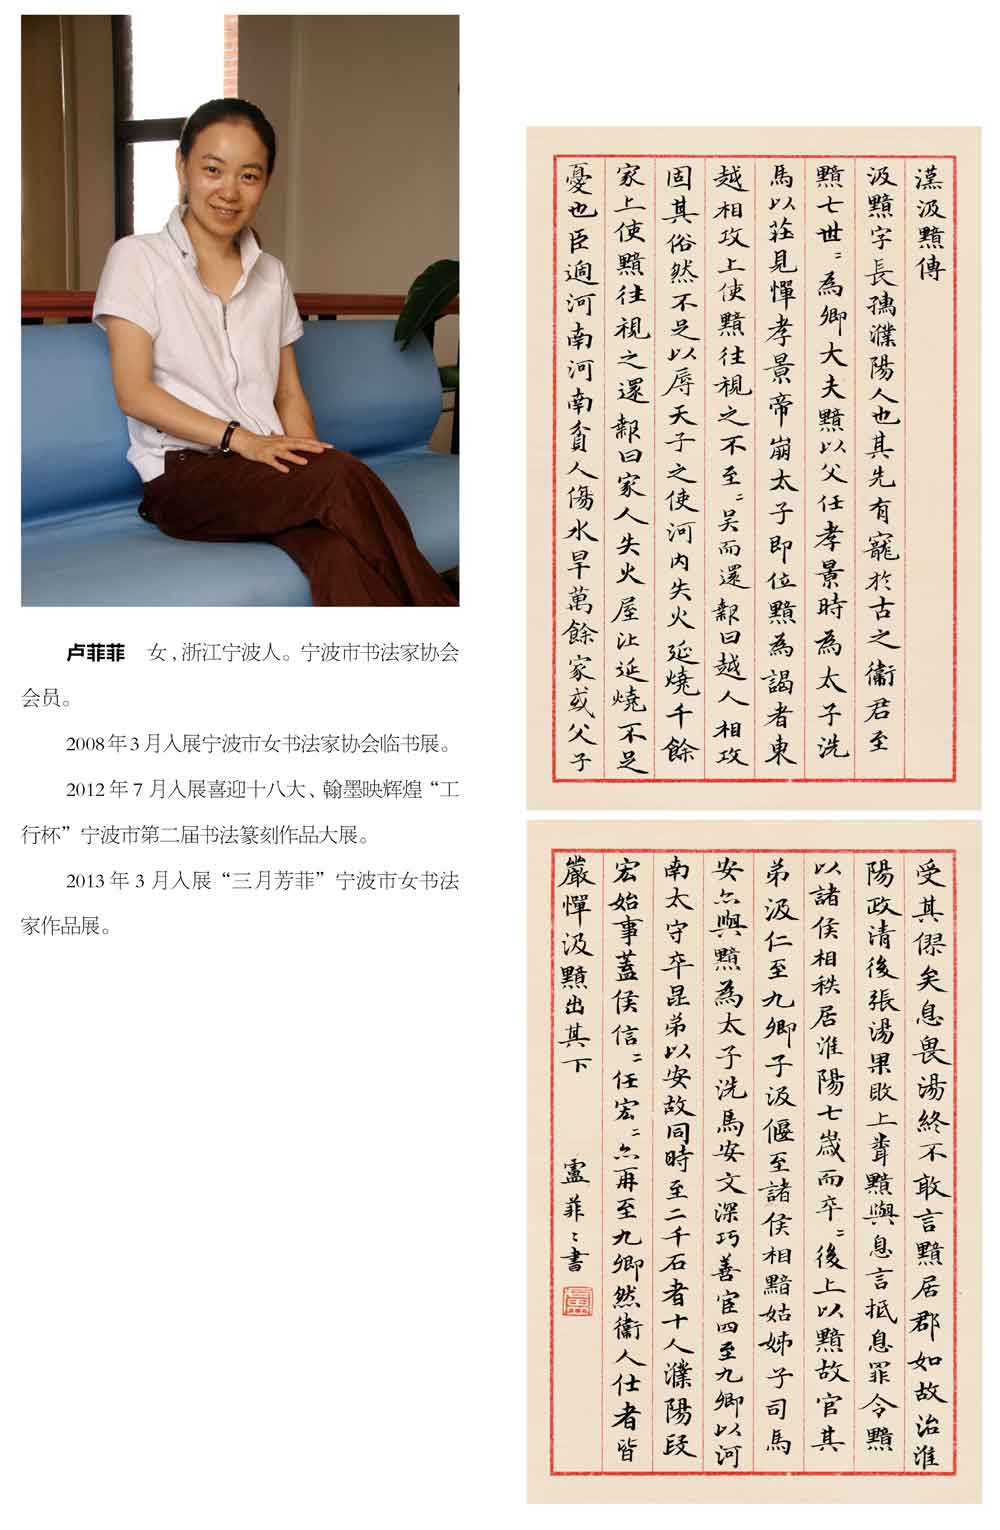 卢菲菲　女，浙江宁波人。宁波市书法家协会
会员。
2008年3月入展宁波市女书法家协会临书展。
2012年7月入展喜迎十八大、翰墨映辉煌“工
行杯”宁波市第二届书法篆刻作品大展。
2013年3月入展“三月芳菲”宁波市女书法
家作品展。
漢汲黯傳
汲黯字長孺濮陽人也其先有寵於古之衛君至
黯七世〻為卿大夫黯以父任孝景時為太子洗
馬以莊見憚孝景帝崩太子即位黯為謁者東
越相攻上使黯往視之不至〻吳而還報曰越人相攻
固其俗然不足以辱天子之使河內失火延燒千餘
家上使黯往視之還報曰家人失火屋比延燒不足
憂也臣過河南河南貧人傷水旱萬餘家或父子
受其僇矣息畏湯終不敢言黯居郡如故治淮
陽政清後張湯果敗上聞黯與息言抵息罪令黯
以諸侯相秩居淮陽七歲而卒〻後上以黯故官其
弟汲仁至九卿子汲偃至諸侯相黯姑姊子司馬
安亦與黯為太子洗馬安文深巧善宦四至九卿以河
南太守卒昆弟以安故同時至二千石者十人濮陽段
宏始事蓋侯信〻任宏〻亦再至九卿然衛人仕者皆
嚴憚汲黯出其下
盧菲〻書